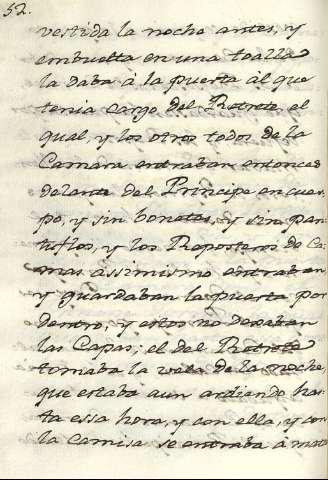 52.
vestida la noche antes, y
embuelta en una toalla
la daba à la puerta al que
tenia cargo del Retrete, el
qual, y los otros todos de la
Camara entraban entonces
delante del Principe en cuer-
po, y sin bonetes, y sin pan-
tuflos, y los Reposteros de Ca-
mas assimismo entraban
y guardaban la puerta por
dentro, y estos no dexaban
las Capas; el del Retrete
tomaba la vela de la noche,
que estaba aun ardiendo has-
ta essa hora, y con ella, y con
la Camisa se entraba à